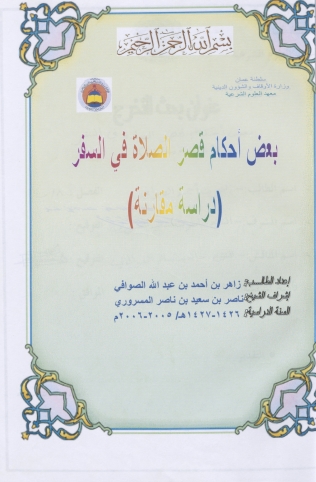 بسم الله الرحمن الرحيم
سلطنة عمان
وزارة الأوقاف والشؤون الدينية
معهد العلوم الشرعية
بعض أحكام قصر الصلاة في السفر
(دراسة مقارنة)
إعداد الطالب: زاهر بن أحمد بن عبد الله الصوافي
إشراف الشيخ: ناصر بن سعيد بن ناصر المسروري
السنة الدراسية: ١٤٢٦-١٤٢٧هـ/ ٢٠٠٥-٢٠٠٦م